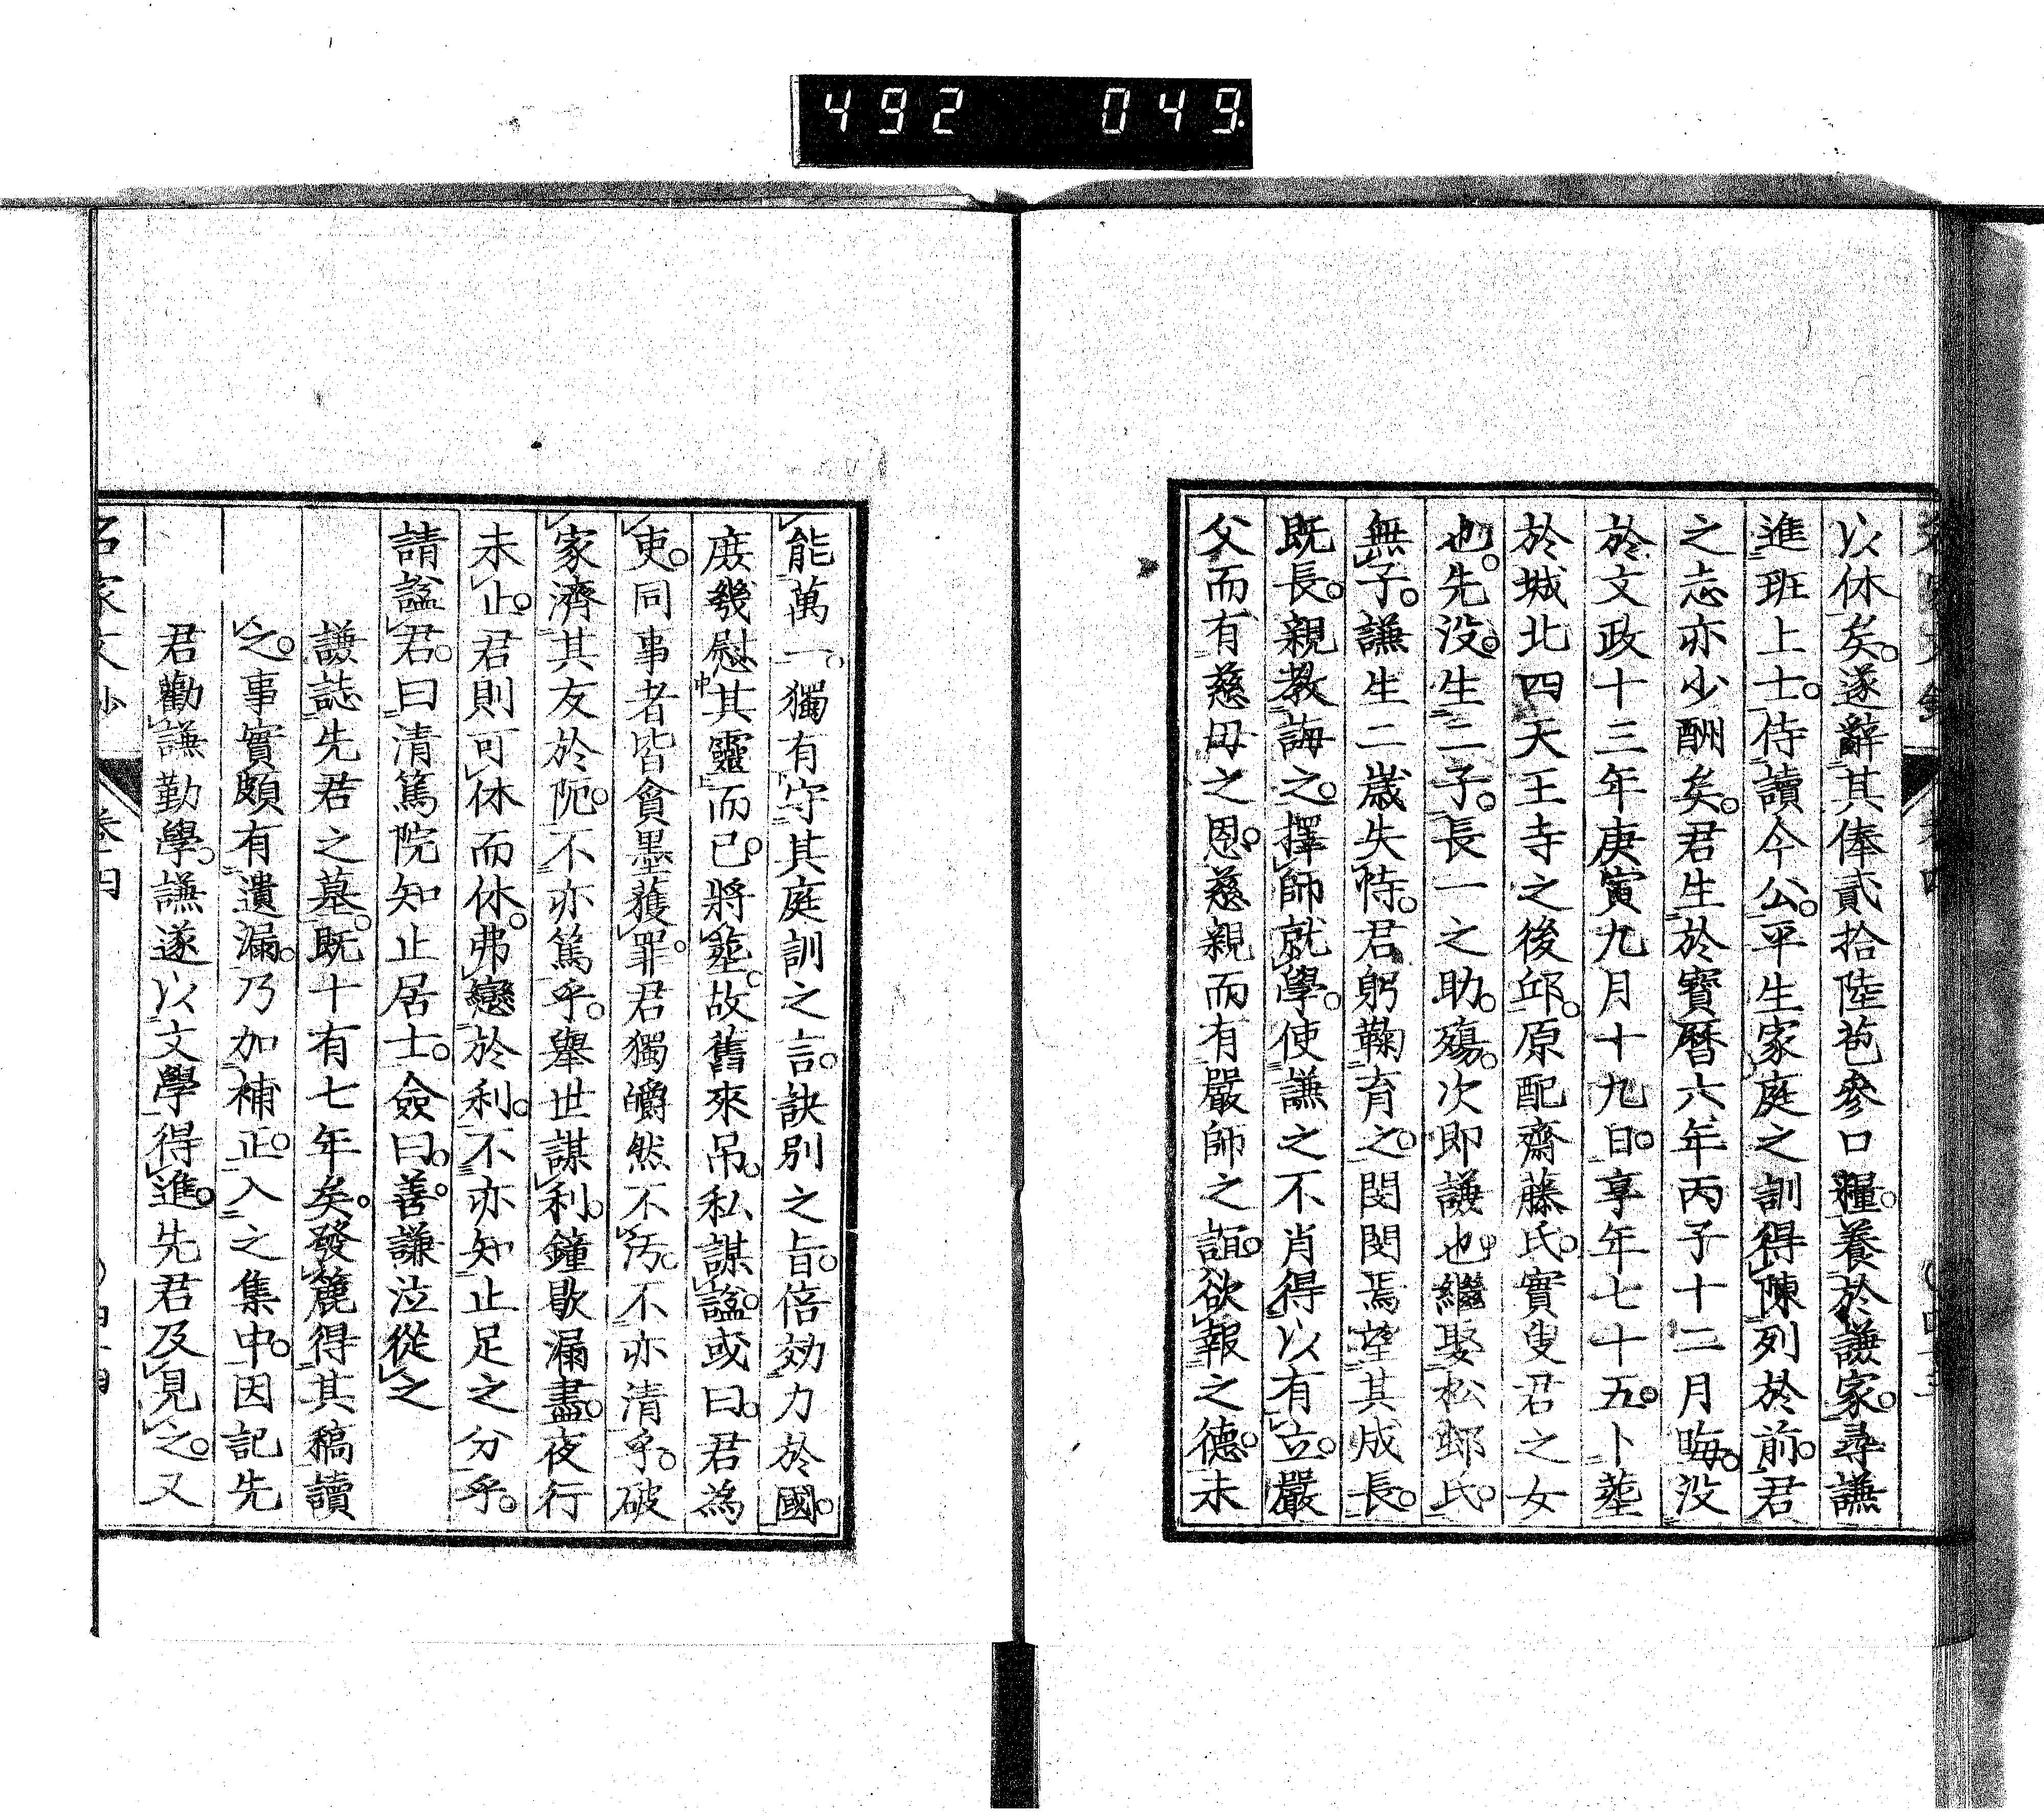 492 049
以休矣。遂辭其俸貳拾陸苞參口糧。養於謙家。尋謙
進班上士。侍讀今公。平生家庭之訓得陳列於前。君
之志亦少酬矣。君生於寶曆六年丙子十二月晦。沒
於文政十三年庚寅九月十九日。享年七十五。卜葬
於城北四天王寺之後邱。原配齋藤氏。實叟君之女
也。先沒。生二子。長一之助。殤。次即謙也。繼娶松邨氏。
無子。謙生二歲失恃。君躬鞠育之。閔閔焉望其成長。
既長。親教誨之。擇師就學。使謙之不肖得以有立。嚴
父而有慈母之恩。慈親而有嚴師之誼。欲報之德。未
能萬一。獨有守其庭訓之言。訣別之旨。倍効力於國。
庶幾慰其靈而已。將葬。故舊來吊。私謀諡。或曰。君為
吏。同事者皆貪墨獲罪。君獨皭然不汚。不亦清乎。破
家濟其友於阨。不亦篤乎。舉世謀利。鐘歇漏盡。夜行
未止。君則可休而休。弗戀於利。不亦知止足之分乎。
請諡君。曰清篤院知止居士。僉曰。善。謙泣從之
謙誌先君之墓。既十有七年矣。發簏得其稿讀
之。事實頗有遺漏。乃加補正。入之集中。因記先
君勸謙勤學。謙遂以文學得進。先君及見之。又
名家文抄 卷四